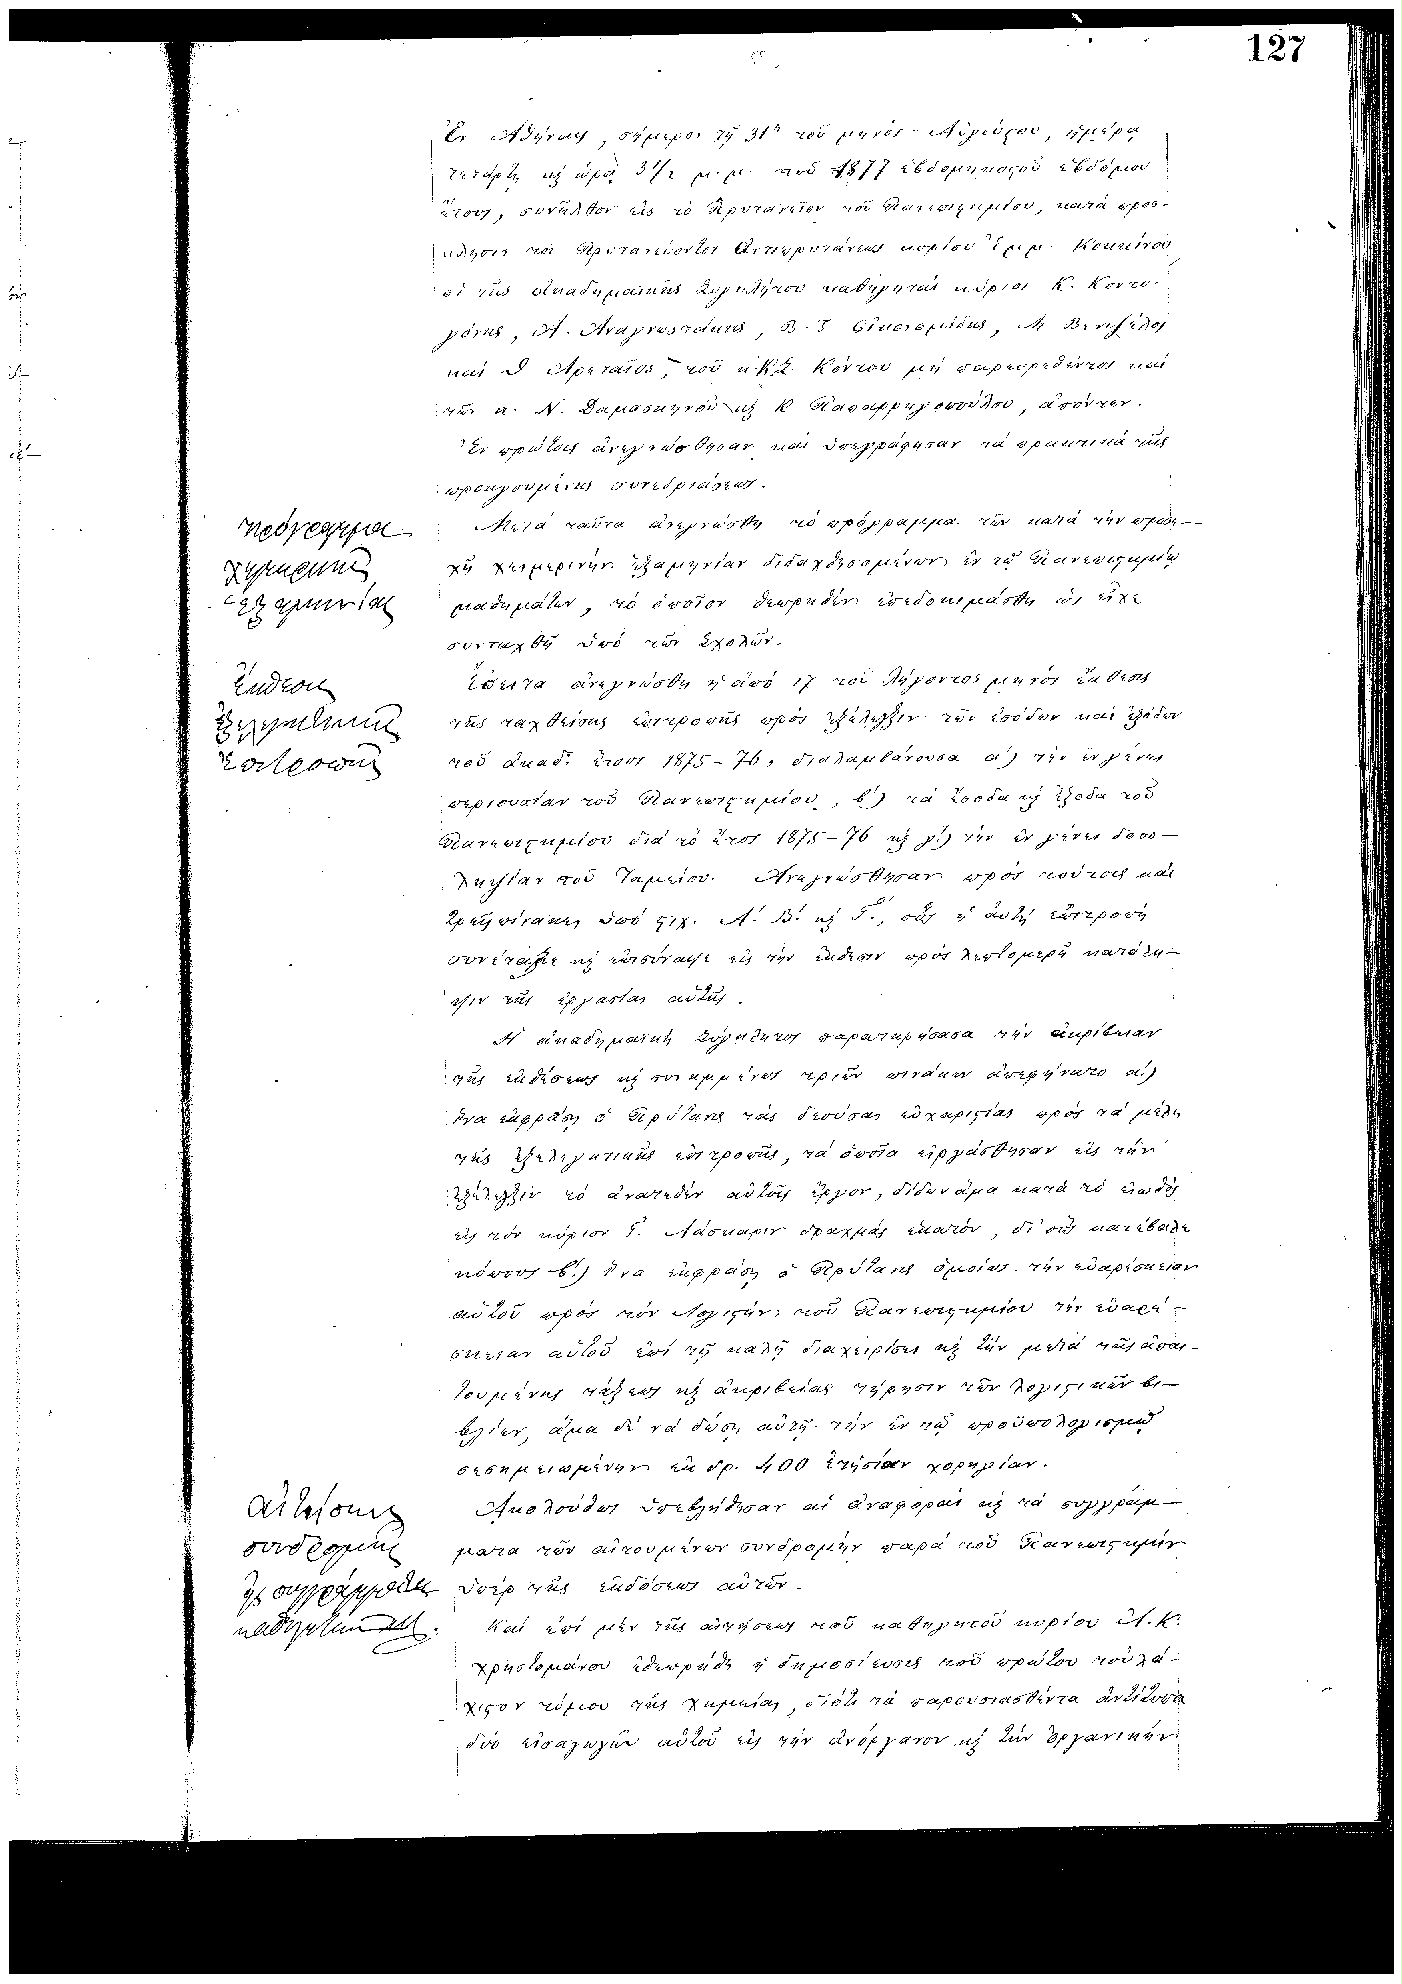 127
Ἐν Ἀθήναις, σήμερον τῇ 31ῃ τοῦ μηνὸς Αὐγούστου, ἡμέρᾳ
τετάρτῃ κὶ ὥρᾳ 3 1/2 μ.μ. τοῦ 1877 ἑβδομηκοστοῦ ἑβδόμου
ἔτους, συνῆλθον εἰς τὸ Πρυτανεῖον τοῦ Πανεπιστημίου, κατὰ πρόσ-
κλησιν τοῦ Πρυτανεύοντος Ἀντιπρυτάνεως κυρίου Ἐμμ. Κοκκίνου
οἱ τῆς ἀκαδημαϊκῆς Συγκλήτου καθηγηταὶ κύριοι Κ. Κοντο-
γόνης, Α. Ἀναγνωστάκης, Β. Ἰ. Οἰκονομίδης, Μ. Βενιζέλος
καὶ Θ. Ἀρεταῖος, τοῦ κ. Κ.Σ. Κόντου μὴ παρευρεθέντος καὶ
τῶν κ. Ν. Δαμασκηνοῦ κὶ Κ. Παπαρρηγοπούλου, ἀπόντων.
Ἐν πρώτοις ἀνεγνώσθησαν καὶ ὑπεγράφησαν τὰ πρακτικὰ τῆς
προηγουμένης συνεδριάσεως.
πρόγραμμα
χειμερινῆς
ἑξαμηνίας
Μετὰ ταῦτα ἀνεγνώσθη τὸ πρόγραμμα τῶν κατὰ τὴν προσε-
χῆ χειμερινὴν ἑξαμηνίαν διδαχθησομένων ἐν τῷ Πανεπιστημίῳ
μαθημάτων, τὸ ὁποῖον θεωρηθὲν ἐπεδοκιμάσθη ὡς εἶχε
συνταχθῆ ὑπὸ τῶν Σχολῶν.
Ἔκθεσις
ἐξελεγκτικῆς
ἐπιτροπῆς
Ἔπειτα ἀνεγνώσθη ἡ ἀπὸ 17 τοῦ λήγοντος μηνὸς ἔκθεσις
τῆς ταχθείσης ἐπιτροπῆς πρὸς ἐξέλεγξιν τῶν ἐσόδων καὶ ἐξόδων
τοῦ ἀκαδ. ἔτους 1875-76, διαλαμβάνουσα α') τὴν ἐν γένει
περιουσίαν τοῦ Πανεπιστημίου, β') τὰ ἔσοδα κὶ ἔξοδα τοῦ
Πανεπιστημίου διὰ τὸ ἔτος 1875-76 κὶ γ') τὴν ἐν γένει δοσο-
ληψίαν τοῦ Ταμείου. Ἀνεγνώσθησαν πρὸς τούτοις καὶ
τρεῖς πίνακες ὑπὸ στιχ. Α'. Β'. κὶ Γ'., οὓς ἡ αὐτὴ ἐπιτροπὴ
συνέταξε κὶ ἐπισύναψε εἰς τὴν ἔκθεσιν πρὸς λεπτομερῆ κατάλη-
ψιν τῆς ἐργασίας αὐτῆς.
Ἡ ἀκαδημαϊκὴ Σύγκλητος παρατηρήσασα τὴν ἀκρίβειαν
τῆς ἐκθέσεως κὶ συνημμένως τριῶν πινάκων ἀπεφήνατο α')
ἵνα ἐκφράσῃ ὁ Πρύτανις τὰς δεούσας εὐχαριστίας πρὸς τὰ μέλη
τῆς ἐξελεγκτικῆς ἐπιτροπῆς, τὰ ὁποῖα εἰργάσθησαν εἰς τὴν
ἐξέλεγξιν τὸ ἀνατεθὲν αὐτοῖς ἔργον, δίδων ἅμα κατὰ τὸ εἰωθὸς
εἰς τὸν κύριον Γ. Λάσκαριν δραχμὰς ἑκατόν, δι' οὓς κατέβαλε
κόπους β'.) ἵνα ἐκφράσῃ ὁ Πρύτανις ὁμοίως τὴν εὐαρέσκειαν
αὐτοῦ πρὸς τὸν Λογιστὴν τοῦ Πανεπιστημίου τὴν εὐαρέ-
σκειαν αὐτοῦ ἐπὶ τῇ καλῇ διαχειρίσει κὶ τὴν μετὰ τῆς ἀπαι-
τουμένης τάξεως κὶ ἀκριβείας τήρησιν τῶν λογιστικῶν βι-
βλίων, ἅμα δὲ νὰ δώσῃ αὐτῷ τὴν ἐν τῷ προϋπολογισμῷ
σεσημειωμένην ἐκ δρ. 400 ἐτησίαν χορηγίαν.
Αἰτήσεις
συνδρομῆς
εἰς συγγράμματα
καθηγητῶν κλπ.
Ἀκολούθως ὑπεβλήθησαν αἱ ἀναφοραὶ κὶ τὰ συγγράμ-
ματα τῶν αἰτουμένων συνδρομὴν παρὰ τοῦ Πανεπιστημίου
ὑπὲρ τῆς ἐκδόσεως αὐτῶν.
Καὶ ἐπὶ μὲν τῆς αἰτήσεως τοῦ καθηγητοῦ κυρίου Α. Κ.
Χρηστομάνου ἐθεωρήθη ἡ δημοσίευσις τοῦ πρώτου τοὐλά-
χιστον τόμου τῆς Χημείας, διότι τὰ παρουσιασθέντα ἀντίτυπα
δύο εἰσαγωγῶν αὐτοῦ εἰς τὴν ἀνόργανον κὶ τὴν ὀργανικὴν